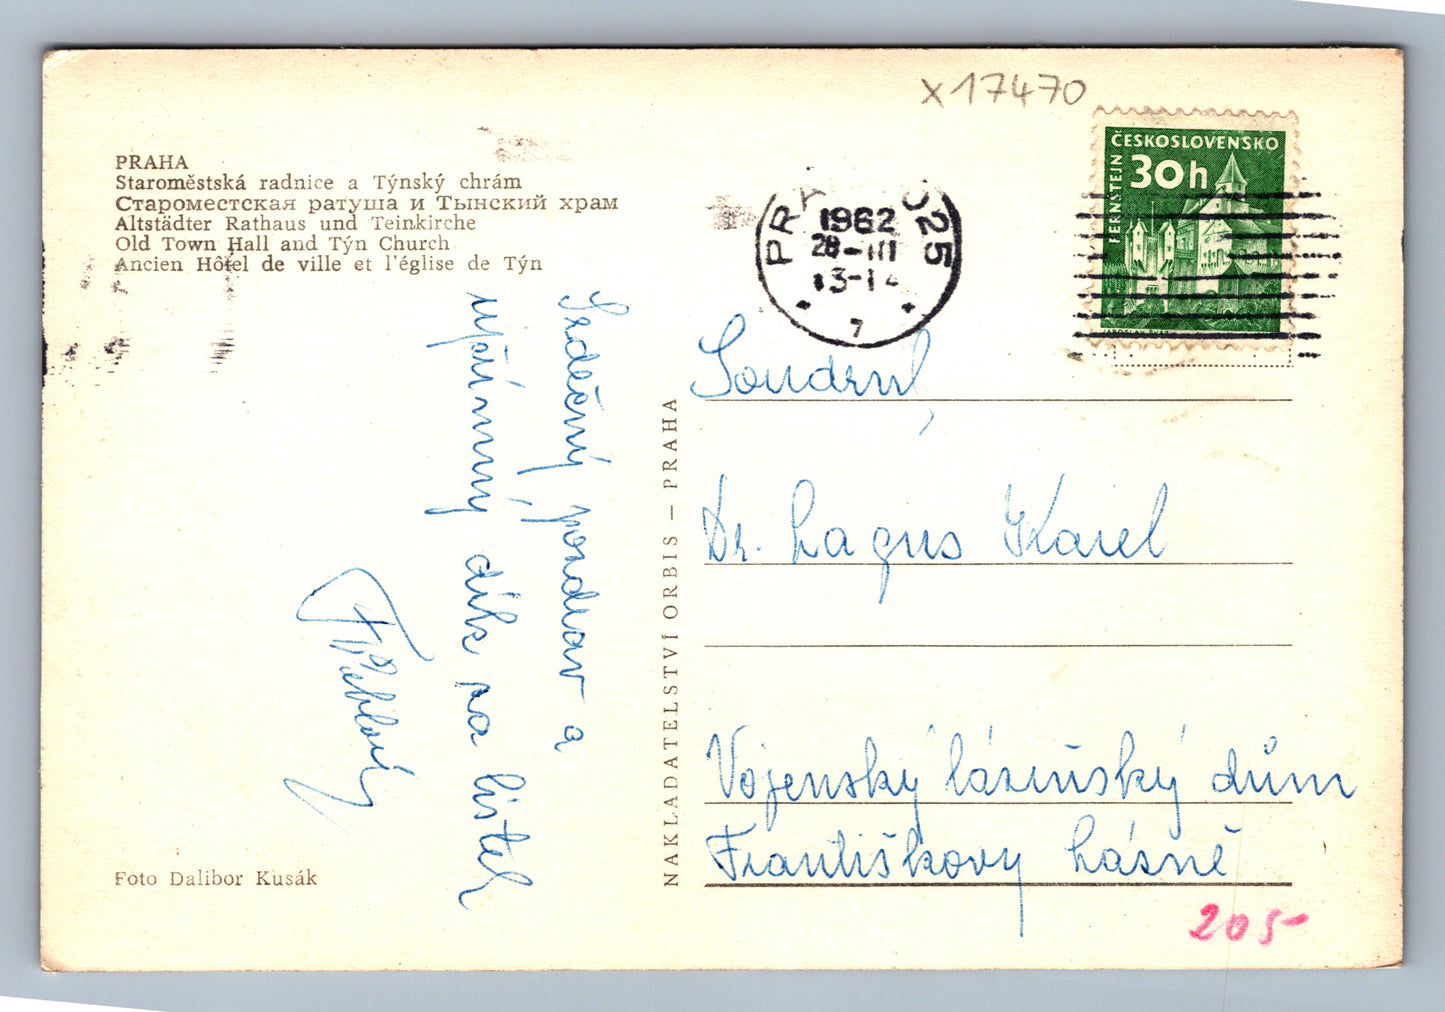 x 17470
PRAHA
Staroměstská radnice a Týnský chrám
Староместская ратуша и Тынский храм
Altstädter Rathaus und Teinkirche
Old Town Hall and Týn Church
Ancien Hôtel de ville et l'église de Týn
ČESKOSLOVENSKO
30h
PERNŠTEJN
1962
28-III
13-14
7
Srdečný pozdrav a
upřímný dík za lístek
NAKLADATELSTVÍ ORBIS – PRAHA
Soudruh,
Dr. Lagus Karel
Vojenský lázeňský dům
Františkovy Lázně
Foto Dalibor Kusák
205-